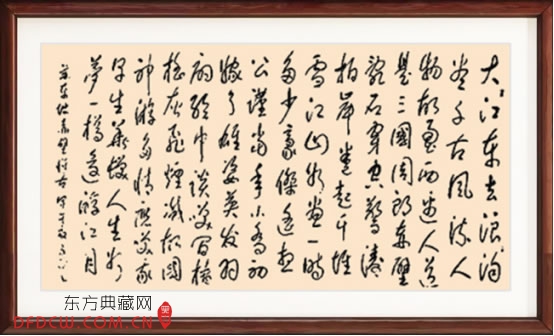 大江东去浪淘
尽千古风流人
物故垒西边人道
是三國周郎赤壁
乱石穿空驚濤
拍岸卷起千堆
雪江山如画一時
多少豪傑遥想
公瑾当年小乔初
嫁了雄姿英发羽
扇纶巾谈笑间樯
橹灰飞煙滅故國
神游多情应笑我
早生華发人生如
夢一樽還酹江月
苏東坡赤壁怀古
东方典藏网
DFDCW.COM.CN